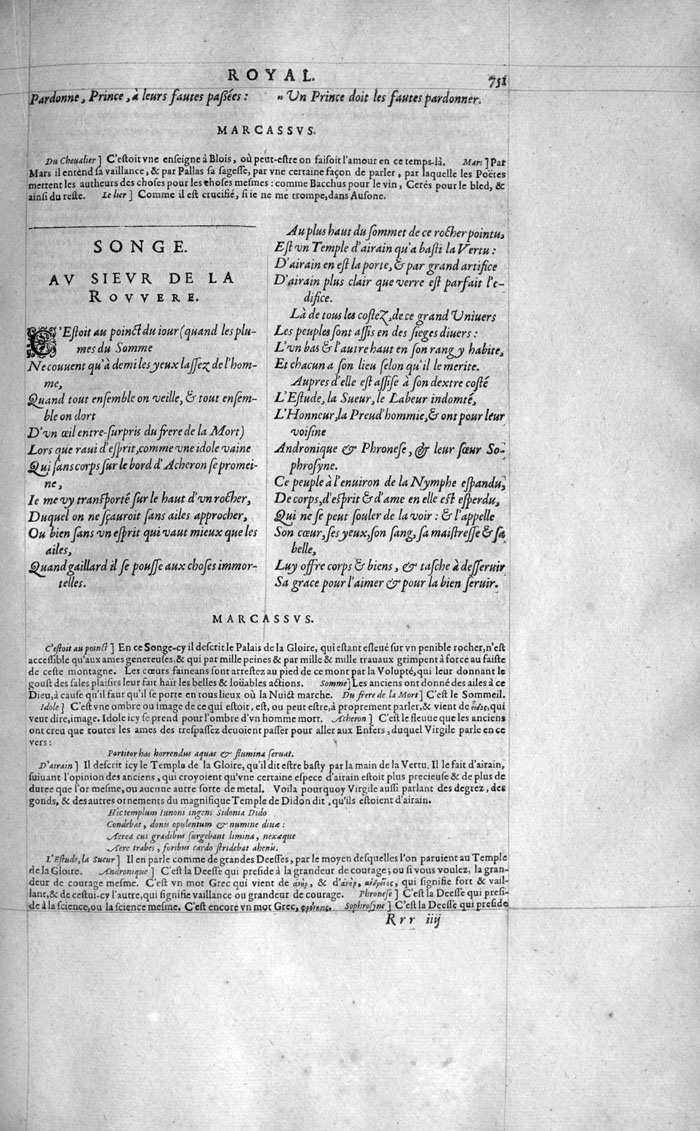 ROYAL. 751
Pardonne, Prince, à leurs fautes passées :
„ Un Prince doit les fautes pardonner.
MARCASSVS.
Du Cheualier ] C'estoit vne enseigne à Blois, où peut-estre on faisoit l'amour en ce temps-là. Mars ] Par
Mars il entend sa vaillance, & par Pallas sa sagesse, par vne certaine façon de parler, par laquelle les Poëtes
mettent les autheurs des choses pour les choses mesmes : comme Bacchus pour le vin, Cerés pour le bled, &
ainsi du reste. Le lier ] Comme il est crucifié, si ie ne me trompe, dans Ausone.
SONGE.
AV SIEVR DE LA
ROVVERE.
C'Estoit au poinct du iour (quand les plu-
mes du Somme
Ne couuent qu'à demi les yeux lassez de l'hom-
me,
Quand tout ensemble on veille, & tout ensem-
ble on dort
D'vn œil entre-surpris du frere de la Mort)
Lors que raui d'esprit, comme vne idole vaine
Qui sans corps sur le bord d'Acheron se promei-
ne,
Ie me vy transporté sur le haut d'vn rocher,
Duquel on ne sçauroit sans ailes approcher,
Ou bien sans vn esprit qui vaut mieux que les
ailes,
Quand gaillard il se pousse aux choses immor-
telles.
Au plus haut du sommet de ce rocher pointu,
Est vn Temple d'airain qu'a basti la Vertu :
D'airain en est la porte, & par grand artifice
D'airain plus clair que verre est parfait l'e-
difice.
Là de tous les costez, de ce grand Vniuers
Les peuples sont assis en des sieges diuers :
L'vn bas & l'autre haut en son rang y habite,
Et chacun a son lieu selon qu'il le merite.
Aupres d'elle est assise à son dextre costé
L'Estude, la Sueur, le Labeur indomté,
L'Honneur, la Preud'hommie, & ont pour leur
voisine
Andronique & Phronese, & leur sœur So-
phrosyne.
Ce peuple à l'enuiron de la Nymphe espandu,
De corps, d'esprit & d'ame en elle est esperdu,
Qui ne se peut souler de la voir : & l'appelle
Son cœur, ses yeux, son sang, sa maistresse & sa
belle,
Luy offre corps & biens, & tasche à desseruir
Sa grace pour l'aimer & pour la bien seruir.
MARCASSVS.
C'estoit au poinct ] En ce Songe-cy il descrit le Palais de la Gloire, qui estant esleué sur vn penible rocher, n'est
accessible qu'aux ames genereuses, & qui par mille peines & par mille & mille trauaux grimpent à force au faiste
de ceste montagne. Les cœurs faineans sont arrestez au pied de ce mont par la Volupté, qui leur donnant le
goust des sales plaisirs leur fait hair les belles & loüables actions. Somme ] Les anciens ont donné des ailes à ce
Dieu, à cause qu'il faut qu'il se porte en tous lieux où la Nuict marche. Du frere de la Mort ] C'est le Sommeil.
Idole ] C'est vne ombre ou image de ce qui estoit, est, ou peut estre, à proprement parler, & vient de qui
veut dire, image. Idole icy se prend pour l'ombre d'vn homme mort. Acheron ] C'est le fleuue que les anciens
ont creu que toutes les ames des trespassez deuoient passer pour aller aux Enfers, duquel Virgile parle en ce
vers :
Portitor has horrendus aquas & flumina seruat.
D'airain ] Il descrit icy le Temple de la Gloire, qu'il dit estre basty par la main de la Vertu. Il le fait d'airain,
suiuant l'opinion des anciens, qui croyoient qu'vne certaine espece d'airain estoit plus precieuse & de plus de
duree que l'or mesme, ou aucune autre sorte de metal. Voila pourquoy Virgile aussi parlant des degrez, des
gonds, & des autres ornements du magnifique Temple de Didon dit, qu'ils estoient d'airain.
Hic templum Iunoni ingens Sidonia Dido
Condebat, donis opulentum & numine diuæ :
Aerea cui gradibus surgebant limina, nexæque
Aere trabes, foribus cardo stridebat ahenis.
L'Estude, la Sueur ] Il en parle comme de grandes Deesses, par le moyen desquelles l'on paruient au Temple
de la Gloire. Andronique ] C'est la Deesse qui preside à la grandeur de courage; ou si vous voulez, la gran-
deur de courage mesme. C'est vn mot Grec qui vient de & d' qui signifie fort & vail-
lant, & de cestui-cy l'autre, qui signifie vaillance ou grandeur de courage. Phronese ] C'est la Deesse qui presi-
de à la science, ou la science mesme. C'est encore vn mot Grec, Sophrosyne ] C'est la Deesse qui preside
Rrr iiij